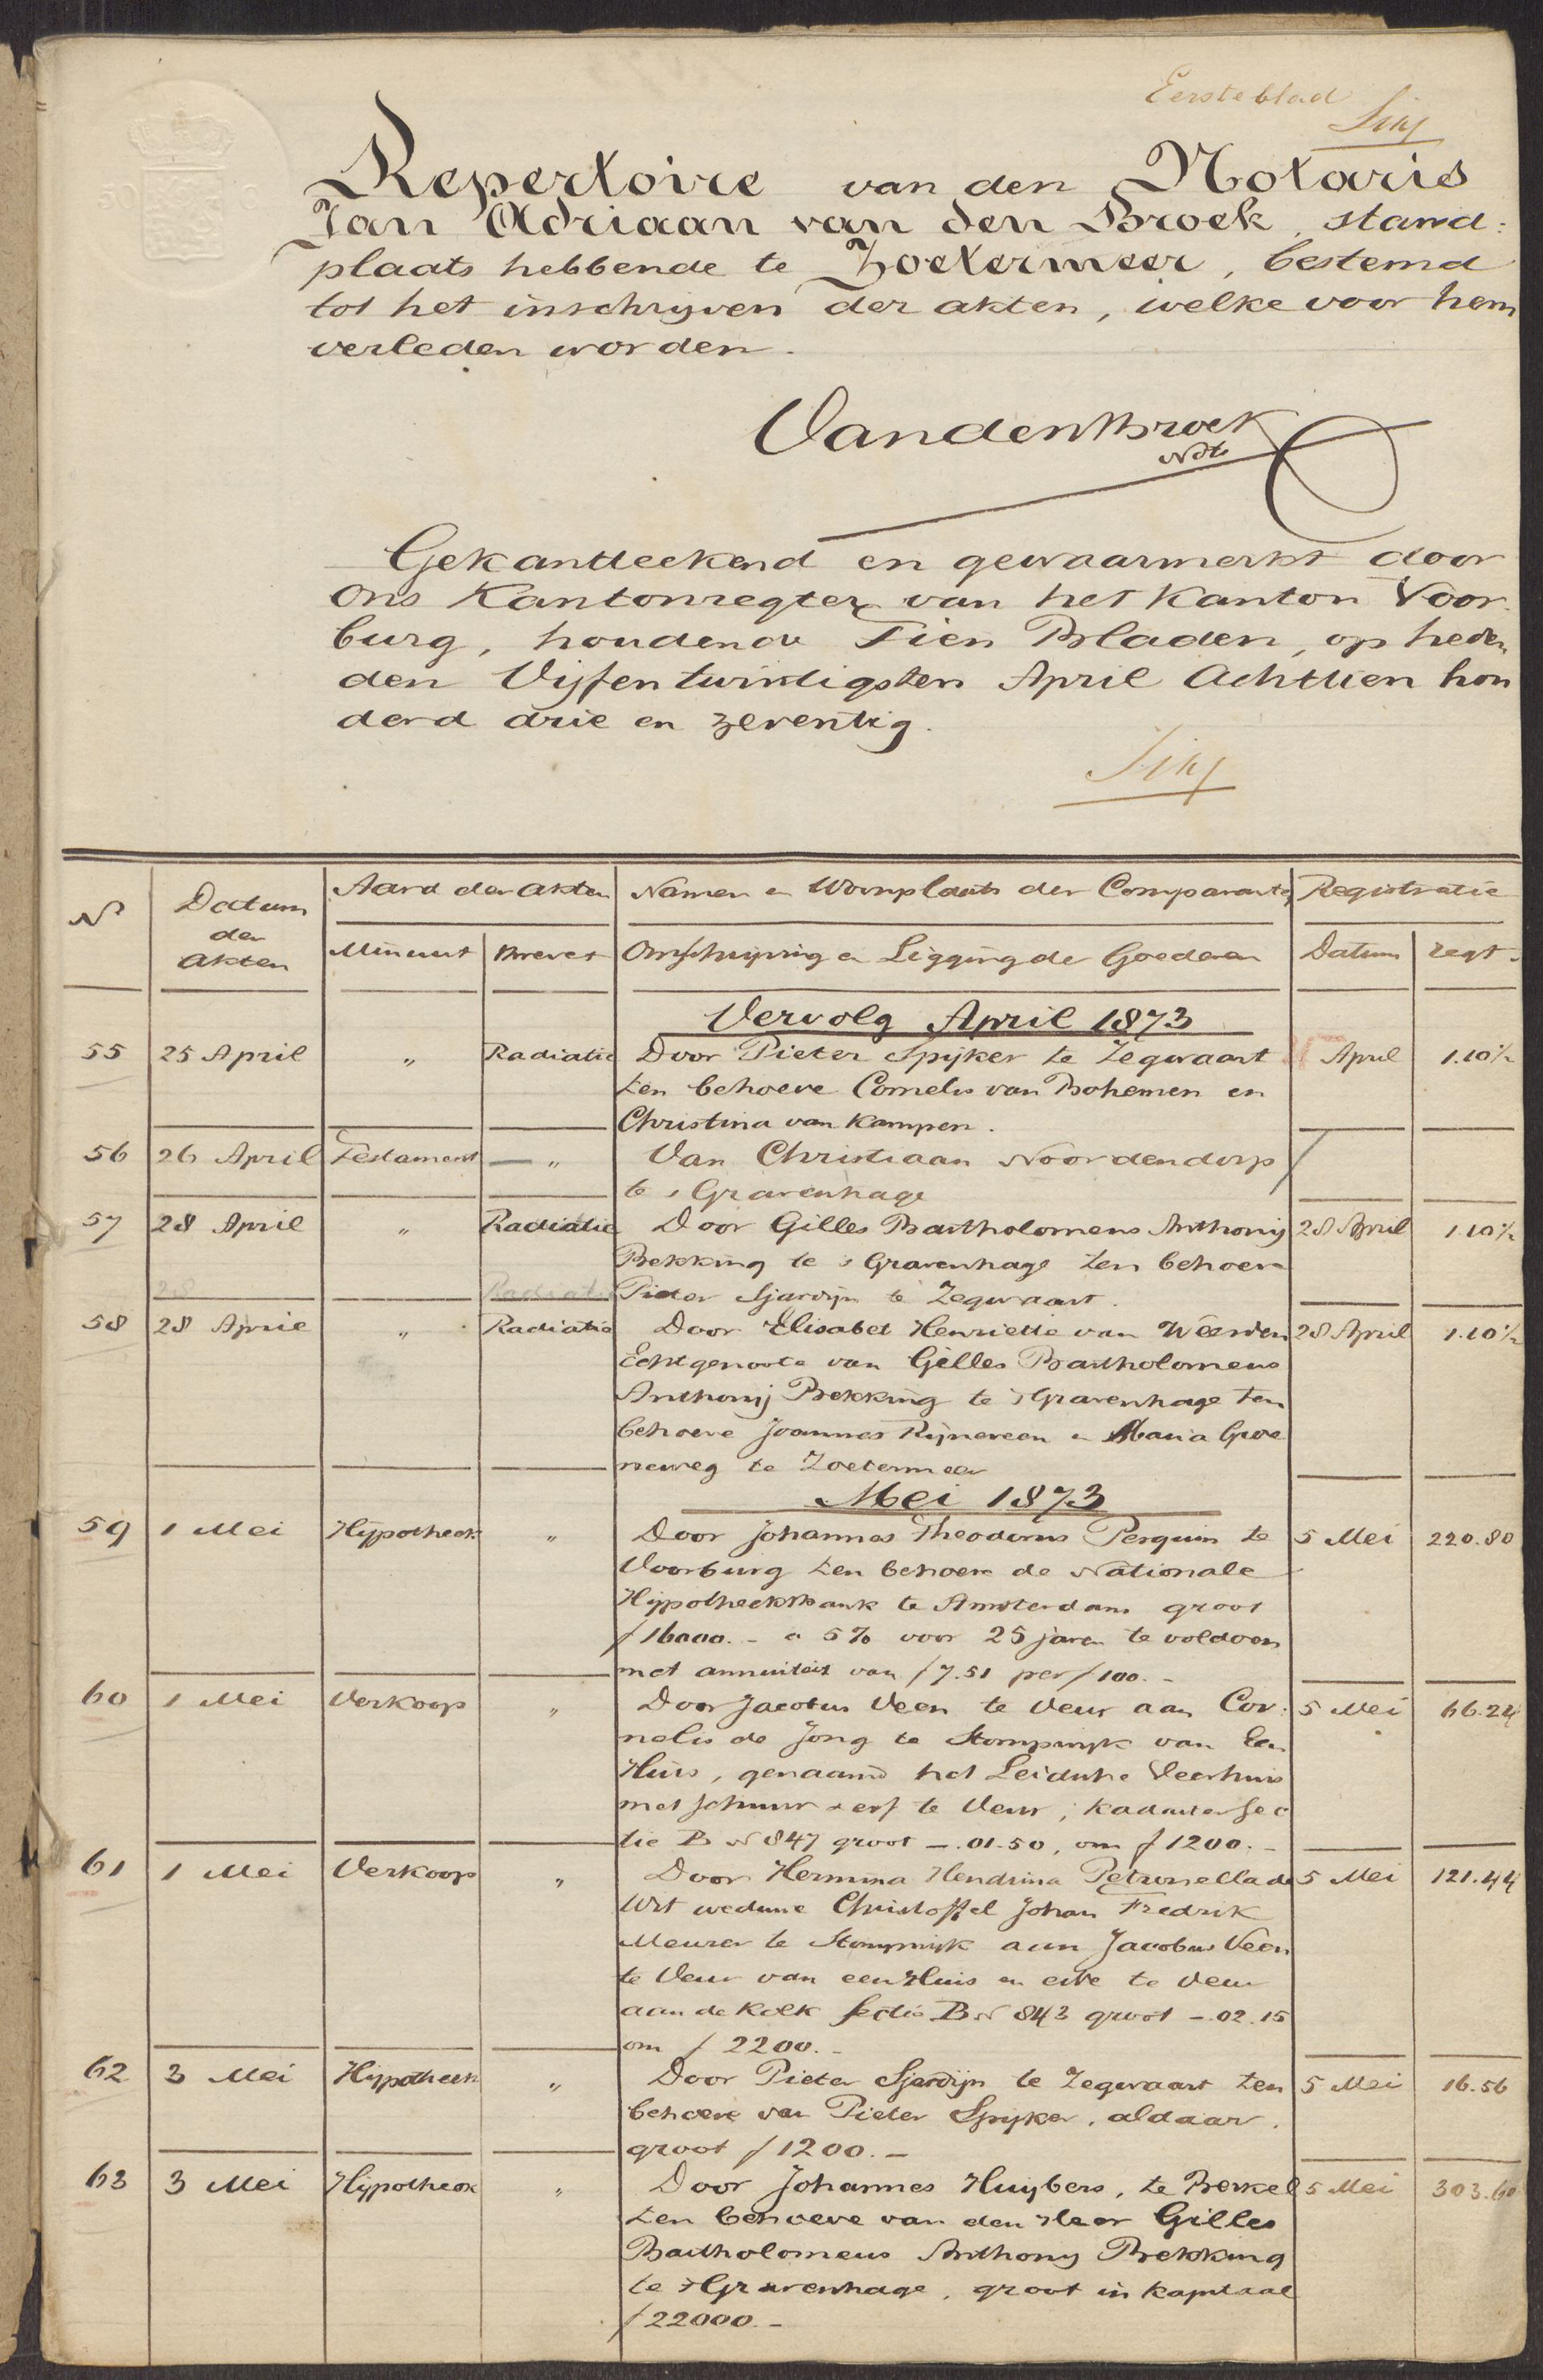 Eerste blad
Repertoire van den Notaris
Jan Adriaan van den Broek, stand:
plaats hebbende te Zoetermeer, bestemd
tot het inschrijven der akten, welke voor hem
verleden worden.
VandenBroek
Nots
Gekantteekend en gewaarmerkt door
Ons Kantonregter van het Kanton Voor
burg, houdende Tien Bladen, op heden
den Vijfentwintigsten April Achttien hon
derd drie en zeventig.
No Datum der Akten Aard der Akten Namen en Woonplaats der Comparanten Registratie
Minuut Brevet Omschrijving en Ligging der Goederen Datum regt.
Vervolg April 1873
55 25 April " Radiatie Door Pieter Spijker te Zegwaart April 1.10½
ten behoeve Cornelis van Bohemen en
Christina van Kampen.
56 26 April Testament — " Van Christiaan Noordendorp
te s Gravenhage
57 28 April " Radiatie Door Gilles Bartholomeus Anthonij 28 April 1.10½
Bekking te s Gravenhage ten behoeve
28 Radiatie Pieter Sjardijn te Zegwaart.
58 28 April " Radiatie Door Elisabet Henriette van Weerden 28 April 1.10½
Echtgenoote van Gilles Bartholomeus
Anthonij Bekking te s Gravenhage ten
behoeve Joannes Rijneveen en Maria Groe
neweg te Zoetermeer
Mei 1873
59 1 Mei Hypotheek " Door Johannes Theodorus Perquin te 5 Mei 220.80
Voorburg ten behoeve de Nationale
Hypotheekbank te Amsterdam groot
f 16000.- a 5% voor 25 jaren te voldoen
met annuiteit van f 7.51 per f 100.-
60 1 Mei Verkoop " Door Jacobus Veen te Veur aan Cor: 5 Mei 66.24
nelis de Jong te Stompwijk van Een
Huis, genaamd het Leidsche Veerhuis
met schuur & erf te Veur, Kadaster Sec
tie B No 847 groot -.01.50, om f 1200.-
61 1 Mei Verkoop " Door Hermina Hendrina Petronella de 5 Mei 121.44
Wit weduwe Christoffel Johan Fredrik
Meurer te Stompwijk aan Jacobus Veen
te Veur van een Huis en erve te Veur
aan de Kolk Sectie B No 843 groot -.02.15
om f 2200.-
62 3 Mei Hypotheek " Door Pieter Sjardijn te Zegwaart ten 5 Mei 16.56
behoeve van Pieter Spijker, aldaar,
groot f 1200.-
63 3 Mei Hypotheek " Door Johannes Huijbers, te Berkel 5 Mei 303.60
ten behoeve van den Heer Gilles
Bartholomeus Anthony Bekking
te s Gravenhage, groot in kapitaal
f 22000.-